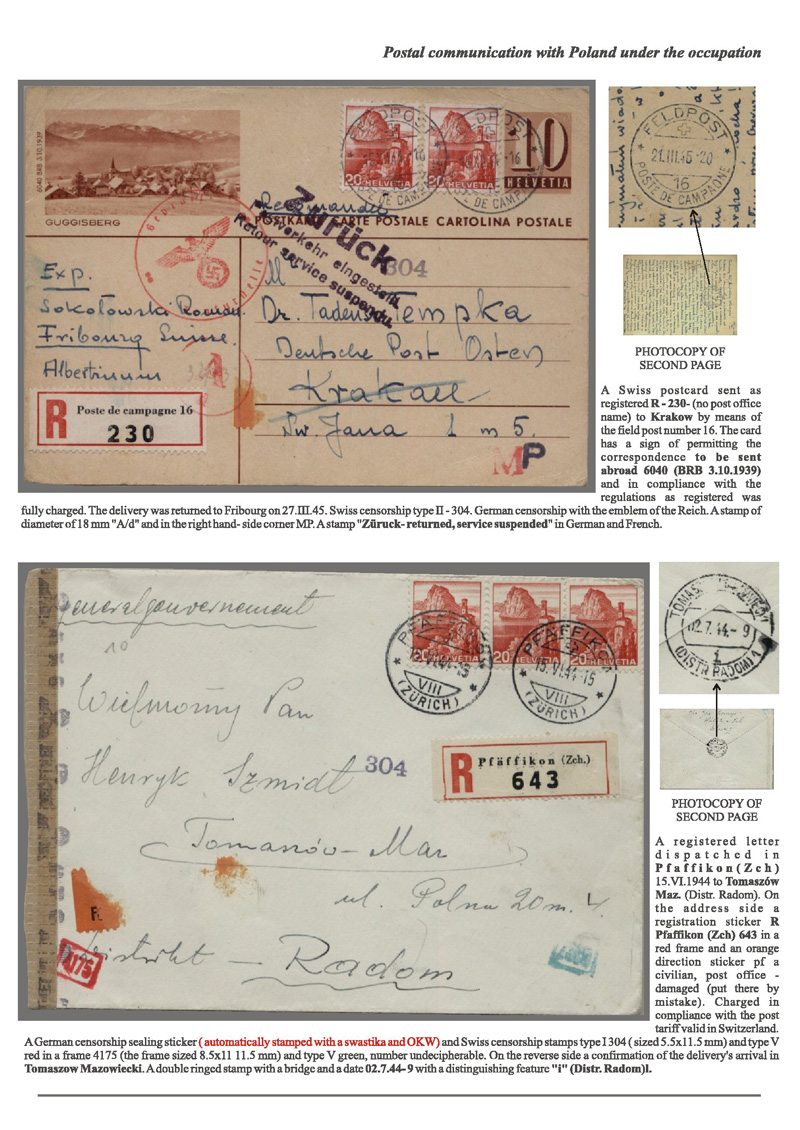 Postal communication with Poland under the occupation
6040 BRB 3.10.1939
GUGGISBERG
FELDPOST
POSTE DE CAMPAGNE
20 HELVETIA
20 HELVETIA
10
HELVETIA
Recommandée
POSTKARTE CARTE POSTALE CARTOLINA POSTALE
Zurück
Postverkehr eingestellt
Retour service suspendu
304
Exp.
Sokołowski Roman
Fribourg Suisse.
Albertinum
A
R
Poste de campagne 16
230
M
Dr. Tadeusz Tempka
Deutsche Post Osten
Krakau
Św. Jana 1 m 5.
MP
FELDPOST
21.III.45-20
16
POSTE DE CAMPAGNE
PHOTOCOPY OF
SECOND PAGE
A Swiss postcard sent as
registered R - 230- (no post office
name) to Krakow by means of
the field post number 16. The card
has a sign of permitting the
correspondence to be sent
abroad 6040 (BRB 3.10.1939)
and in compliance with the
regulations as registered was
fully charged. The delivery was returned to Fribourg on 27.III.45. Swiss censorship type II - 304. German censorship with the emblem of the Reich. A stamp of
diameter of 18 mm "A/d" and in the right hand- side corner MP. A stamp "Züruck- returned, service suspended" in German and French.
Generalgouvernement
10
20 HELVETIA
20 HELVETIA
20 HELVETIA
PFÄFFIKON
15.VI.44-15
VIII
(ZÜRICH)
PFÄFFIKON
15.VI.44-15
VIII
(ZÜRICH)
Wielmożny Pan
Henryk Szmidt
304
R
Pfäffikon (Zch.)
643
Tomaszów-Maz
ul. Polna 20 m. 4.
Distrikt - Radom
4175
TOMASZÓW MAZOWIECKI
02.7.44-9
i
(DISTR RADOM)
PHOTOCOPY OF
SECOND PAGE
A registered letter
dispatched in
Pfaffikon(Zch)
15.VI.1944 to Tomaszów
Maz. (Distr. Radom). On
the address side a
registration sticker R
Pfaffikon (Zch) 643 in a
red frame and an orange
direction sticker pf a
civilian, post office -
damaged (put there by
mistake). Charged in
compliance with the post
tariff valid in Switzerland.
A German censorship sealing sticker ( automatically stamped with a swastika and OKW) and Swiss censorship stamps type I 304 ( sized 5.5x11.5 mm) and type V
red in a frame 4175 (the frame sized 8.5x11 11.5 mm) and type V green, number undecipherable. On the reverse side a confirmation of the delivery's arrival in
Tomaszow Mazowiecki. A double ringed stamp with a bridge and a date 02.7.44- 9 with a distinguishing feature "i" (Distr. Radom)l.